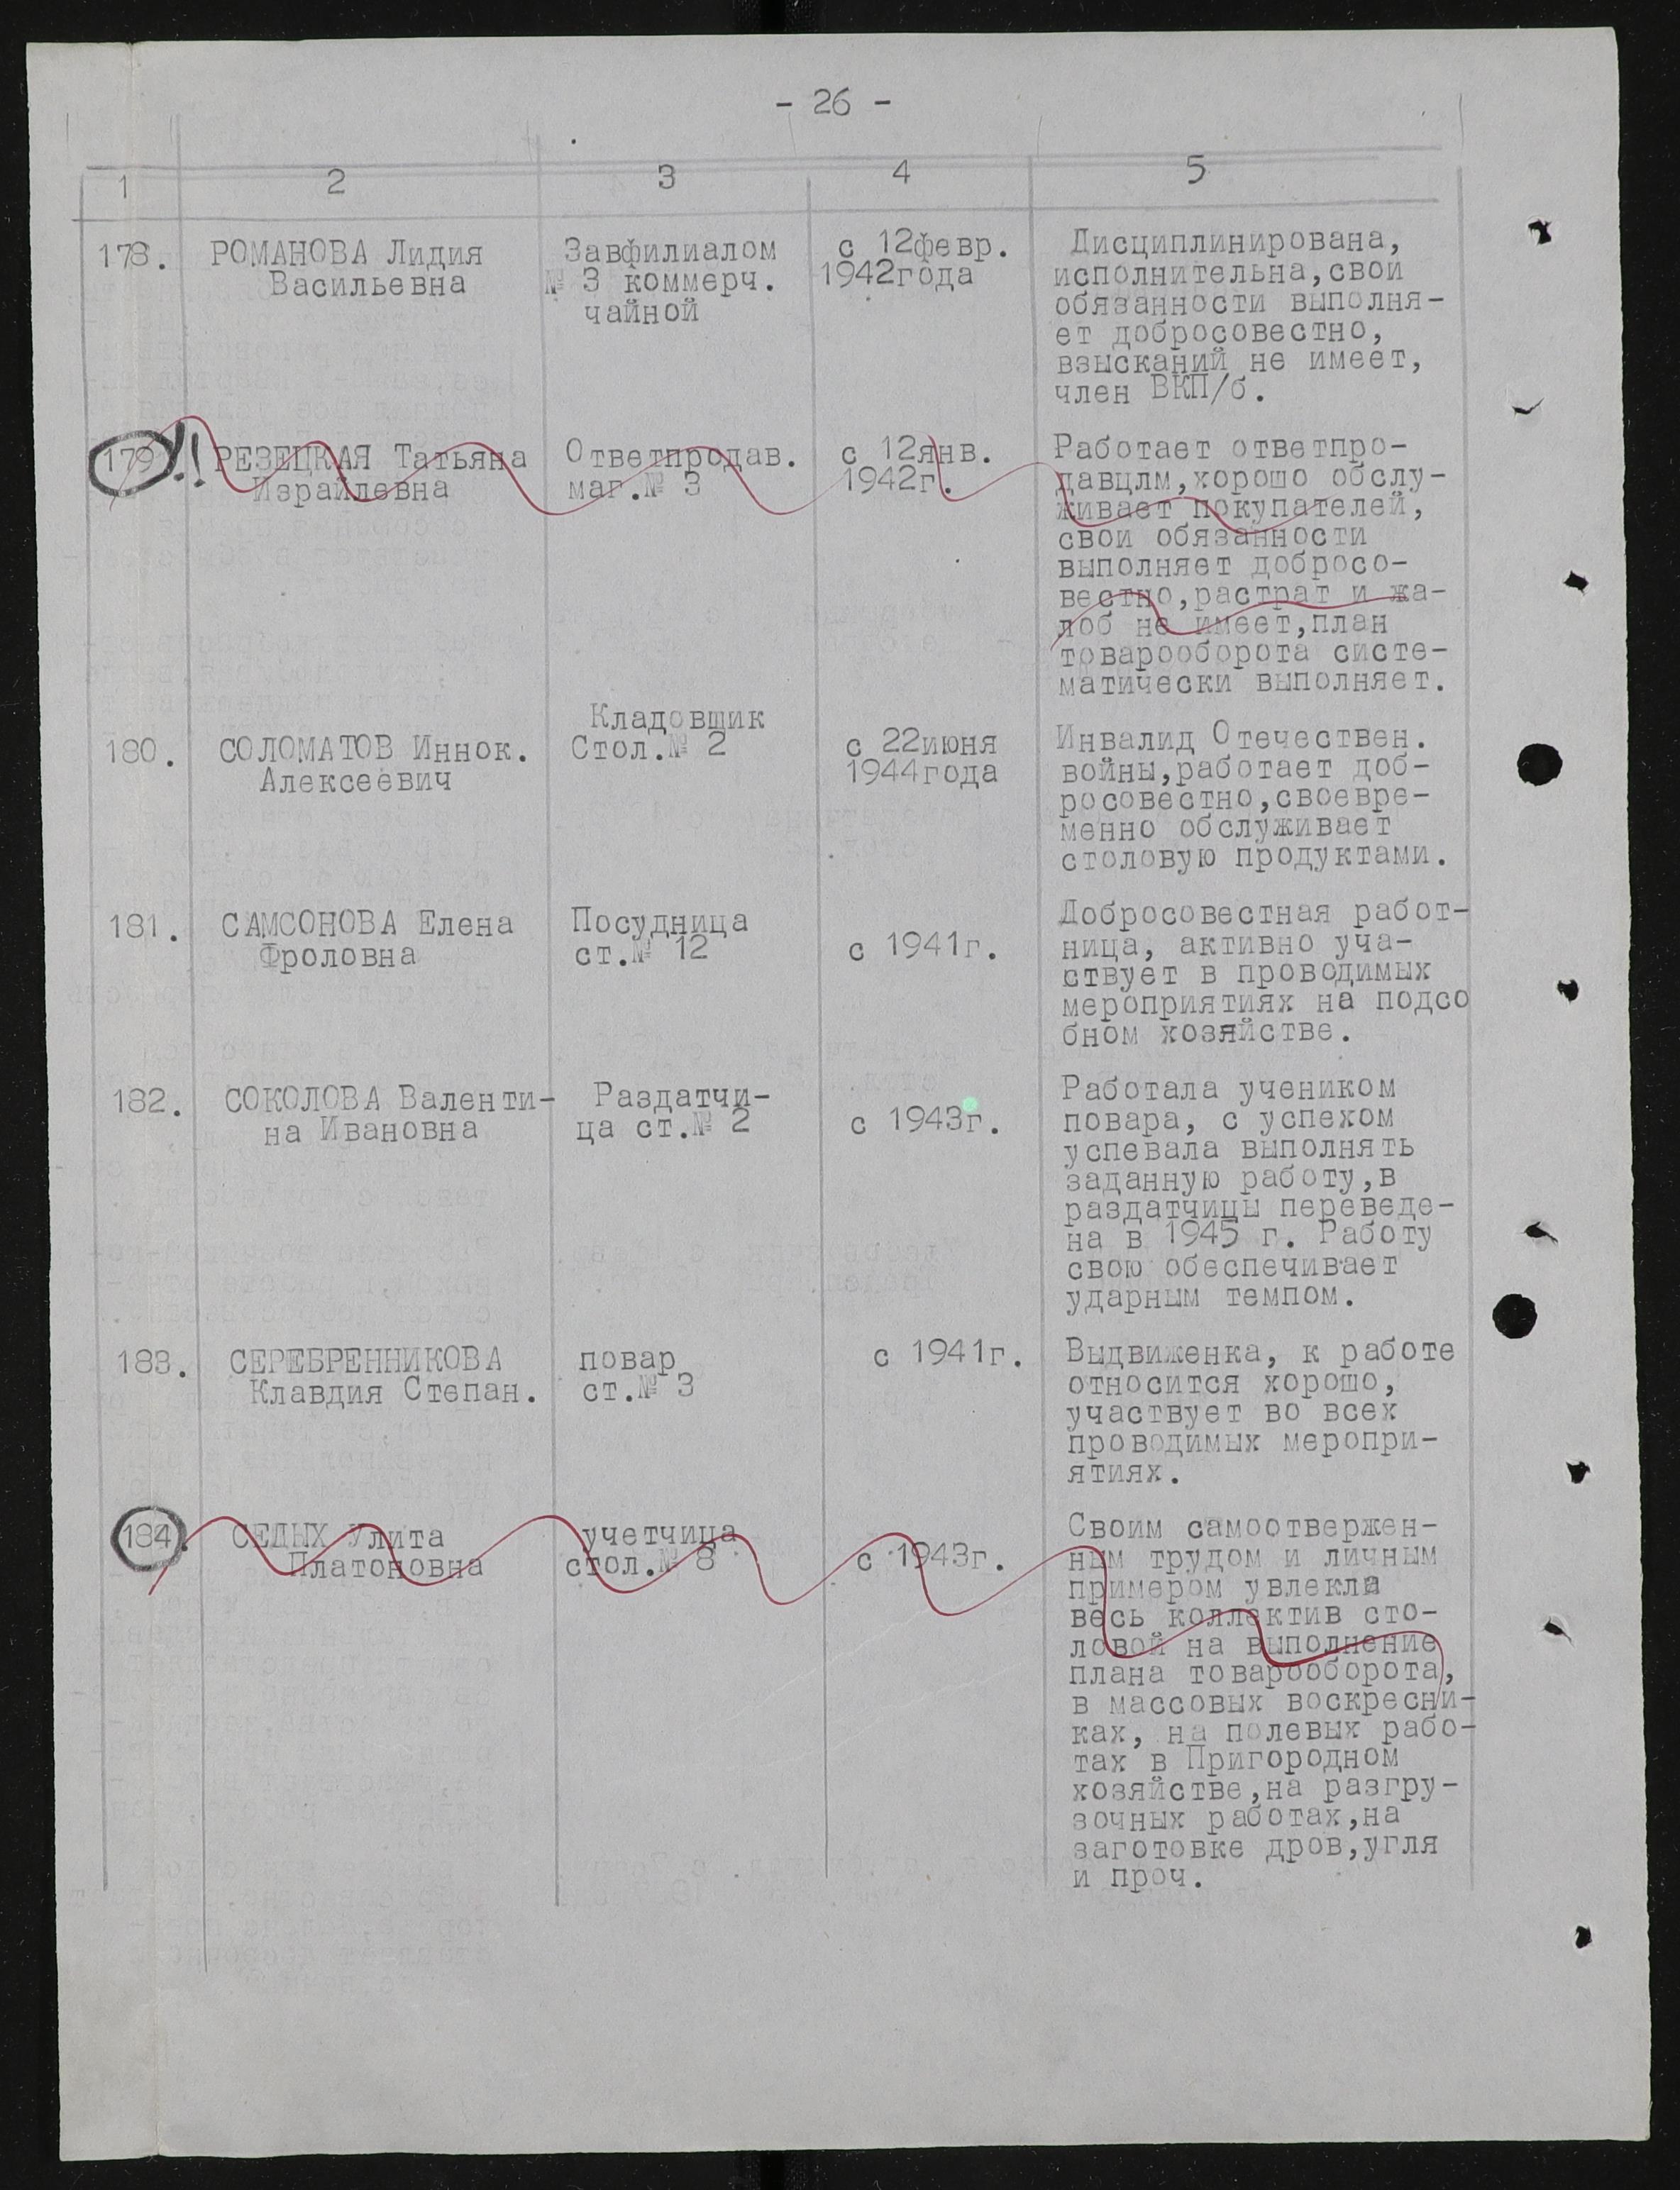 - 26 -
1 2 3 4 5
178. РОМАНОВА Лидия
Васильевна
Завфилиалом
№ 3 коммерч.
чайной
с 12февр.
1942года
Дисциплинирована,
исполнительна,свои
обязанности выполня-
ет добросовестно,
взысканий не имеет,
член ВКП/б.
179 !! РЕЗЕЦКАЯ Татьяна
Израйлевна
Ответпродав.
маг.№ 3
с 12янв.
1942г.
Работает ответпро-
давцлм,хорошо обслу-
живает покупателей,
свои обязанности
выполняет добросо-
вестно,растрат и жа-
лоб не имеет,план
товарооборота систе-
матически выполняет.
180. СОЛОМАТОВ Иннок.
Алексеевич
Кладовщик
Стол.№ 2
с 22июня
1944года
Инвалид Отечествен.
войны,работает доб-
росовестно,своевре-
менно обслуживает
столовую продуктами.
181. САМСОНОВА Елена
Фроловна
Посудница
ст.№ 12
с 1941г.
Добросовестная работ-
ница, активно уча-
ствует в проводимых
мероприятиях на подсо
бном хозяйстве.
182. СОКОЛОВА Валенти-
на Ивановна
Раздатчи-
ца ст.№ 2
с 1943г.
Работала учеником
повара, с успехом
успевала выполнять
заданную работу,в
раздатчицы переведе-
на в 1945 г. Работу
свою обеспечивает
ударным темпом.
183. СЕРЕБРЕННИКОВА
Клавдия Степан.
повар
ст.№ 3
с 1941г.
Выдвиженка, к работе
относится хорошо,
участвует во всех
проводимых меропри-
ятиях.
184. СЕДЫХ Улита
Платоновна
учетчица
стол.№ 8
с 1943г.
Своим самоотвержен-
ным трудом и личным
примером увлекла
весь коллектив сто-
ловой на выполнение
плана товарооборота,
в массовых воскресни-
ках, на полевых рабо-
тах в Пригородном
хозяйстве,на разгру-
зочных работах,на
заготовке дров,угля
и проч.